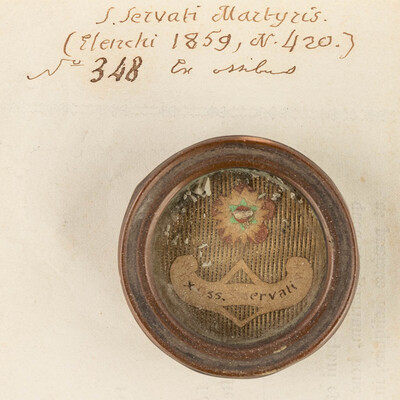 S. Servati Martyris.
(Elenchi 1859, N. 420.)
No 348 Ex ossibus
x oss. Servati